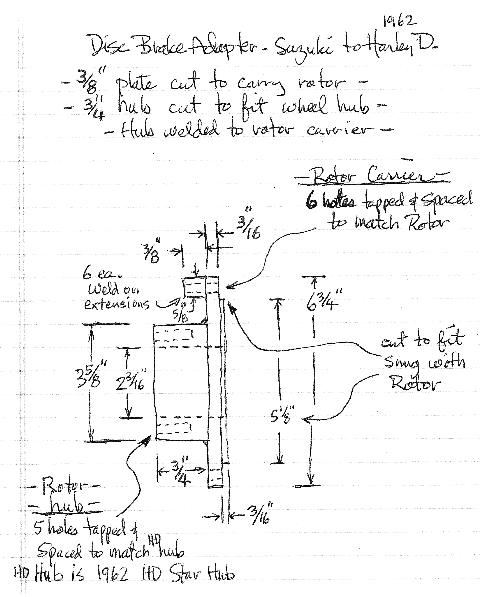 1962
Disc Brake Adapter - Suzuki to Harley D.
- 3/8" plate cut to carry rotor -
- 3/4" hub cut to fit wheel hub -
- Hub welded to rotor carrier -
- Rotor Carrier -
6 holes tapped & spaced
to match Rotor
3/16"
3/8"
6 ea.
weld on
extensions
5/8"
6 3/4"
cut to fit
snug with
Rotor
3 5/8"
2 3/16"
5 1/8"
3/4"
3/16"
- Rotor -
- hub -
5 holes tapped &
spaced to match HD hub
HD Hub is 1962 HD Star Hub